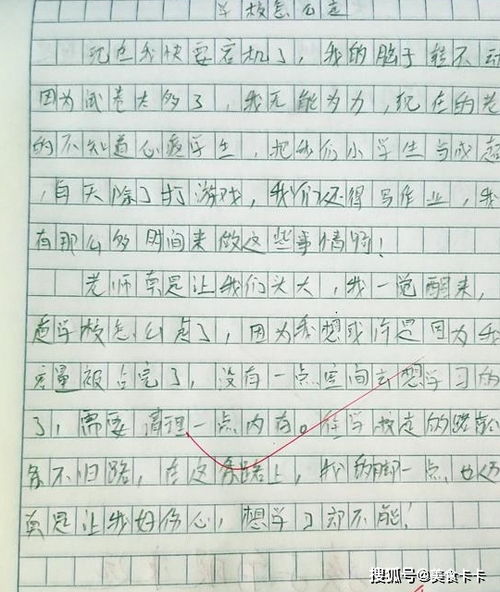 学校怎么走
现在我快要宕机了，我的脑子转不动
因为试卷太多了，我无能为力，现在的老
的不知道心疼学生，把我们小学生当成超
，白天除了打游戏，我们还得写作业，我
有那么多时间来做这些事情啊！
老师真是让我们头大，我一觉醒来，
道学校怎么走了，因为我想或许是因为我
容量被占完了，没有一点空间去想学习的
了，需要清理一点内存。往学校走的路就
条不归路，在这条路上，我的脚一点也
真是让我好伤心，想学习都不能！
搜狐号@美食卡卡